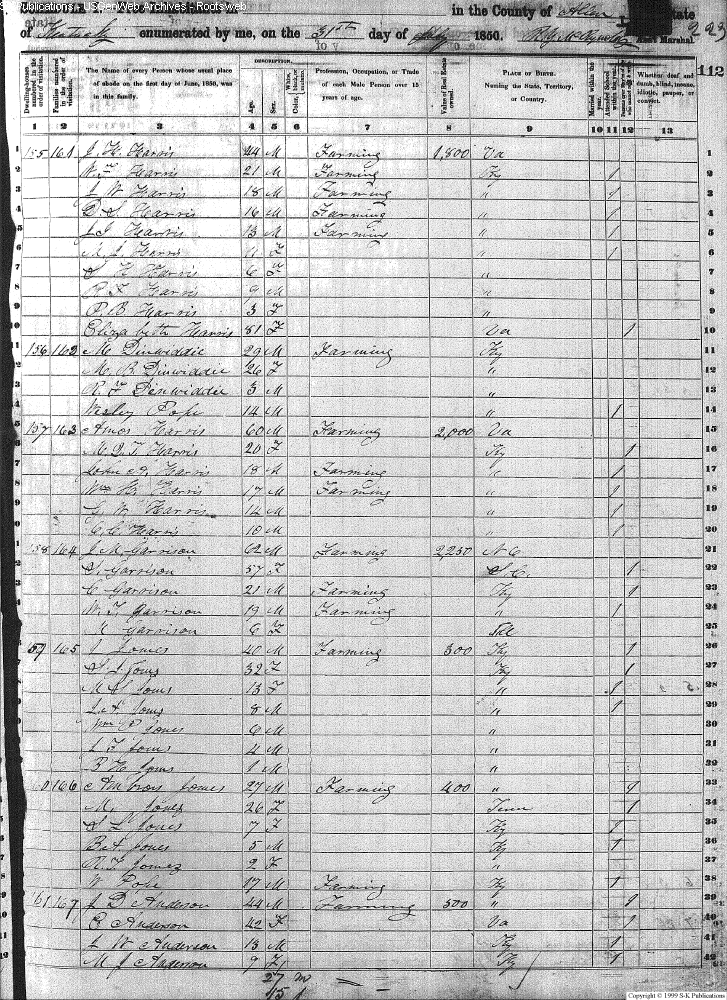 S-K Publications - USGenWeb Archives - Rootsweb
in the County of Allen State
of Kentucky enumerated by me, on the 31st day of July 1850. Ass't Marshal.
223
112
DESCRIPTION.
Dwelling-houses numbered in the order of visitation.
Families numbered in the order of visitation.
The Name of every Person whose usual place of abode on the first day of June, 1850, was in this family.
Age.
Sex.
White, black, or mulatto.
Profession, Occupation, or Trade of each Male Person over 15 years of age.
Value of Real Estate owned.
PLACE OF BIRTH. Naming the State, Territory, or Country.
Married within the year.
Attended School within the year.
Whether deaf and dumb, blind, insane, idiotic, pauper, or convict.
1 2 3 4 5 6 7 8 9 10 11 12 13
1 155 161 J. H. Harris 44 M Farming 1,800 Va 1
2 W. F. Harris 21 M Farming Ky 1 2
3 J W Harris 18 M Farming " 1 3
4 D S. Harris 16 M Farming " 1 4
5 J. J. Harris 13 M Farming " 1 5
6 M. J. Harris 11 F " 1 6
7 S H Harris 6 F " 7
8 R. F. Harris 9 M " 8
9 P. B. Harris 3 F " 9
10 Elizabeth Harris 81 F Va 1 10
11 156 162 M Dinwiddie 29 M Farming Ky 11
12 M. B. Dinwiddie 26 F " 12
13 R. F Dinwiddie 3 M " 13
14 Wesley Pope 14 M " 1 14
15 157 163 Amos Harris 60 M Farming 2,000 Va 15
16 M. Q. T. Harris 20 F Ky 1 16
17 Harris 18 M Farming " 1 17
18 Wm H. Harris 17 M Farming " 1 18
19 G. W. Harris 14 M " 1 19
20 C. C. Harris 10 M " 1 20
21 158 164 J. M. Garrison 62 M Farming 2,250 N C 21
22 S. Garrison 57 F S. C. 1 22
23 C Garrison 21 M Farming Ky 1 23
24 W. T. Garrison 19 M Farming " 1 24
25 Garrison 6 F 25
26 159 165 J Jones 40 M Farming 300 Ky 1 26
27 S. J. Jones 32 F Ky 1 27
28 Jones 13 F " 1 28
29 Jones 8 M " 1 29
30 Wm Jones 6 M " 30
31 L F Jones 4 M " 31
32 B H Jones 1 M " 32
33 0 166 Ambros Jones 27 M Farming 400 " 33
34 M. Jones 26 F Tenn 1 34
35 S L Jones 7 F Ky 1 35
36 Jones 5 M Ky 1 36
37 R. F. Jones 2 F " 37
38 W Pope 17 M Farming Ky 1 38
39 161 167 J D Anderson 44 M Farming 500 " 1 39
40 E Anderson 42 F Va 1 40
41 L W Anderson 13 M Ky 1 41
42 M J Anderson 9 F Ky 1 42
27 m
15 f
Copyright © 1999 S-K Publications